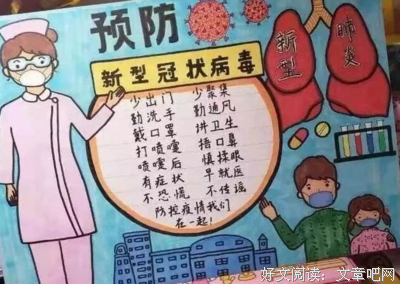 预防
新型冠状病毒
新型
肺炎
少出门 少聚集
勤洗手 勤通风
戴口罩 讲卫生
打喷嚏 捂口鼻
喷嚏后 慎揉眼
有症状 早就医
不恐慌 不传谣
防控疫情我们
在一起!
好文阅读：文章吧网